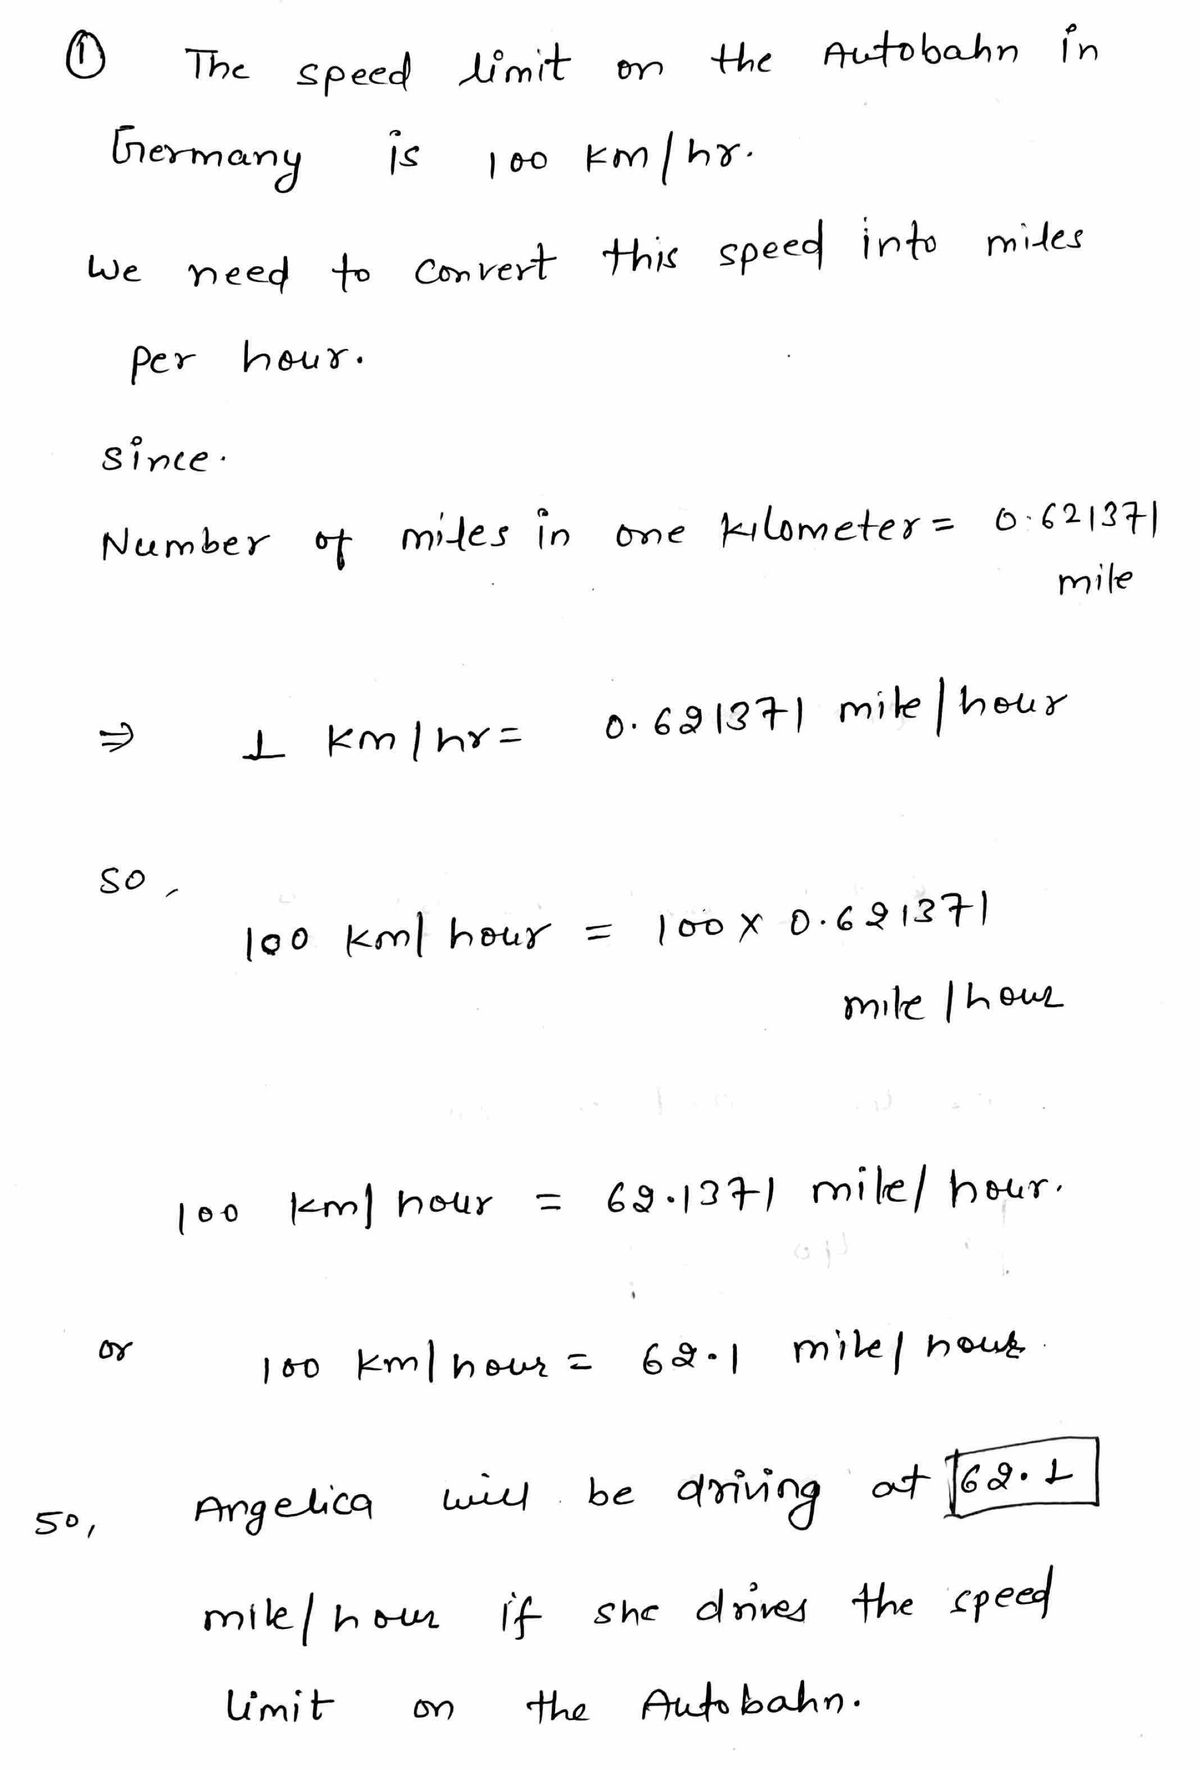 ① The speed limit on the Autobahn in
Germany is 100 km/hr.
We need to convert this speed into miles
per hour.
since.
Number of miles in one kilometer = 0.621371
mile
⇒ 1 km/hr = 0.621371 mile/hour
so,
100 km/hour = 100 x 0.621371
mile/hour
100 km/hour = 62.1371 mile/hour.
or 100 km/hour = 62.1 mile/hour.
so, Angelica will be driving at 62.1
mile/hour if she drives the speed
limit on the Autobahn.